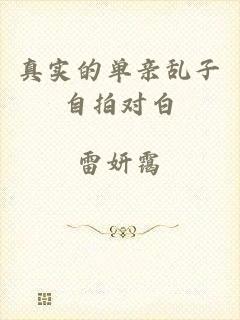 真实的单亲乱子
自拍对白
雷妍霭